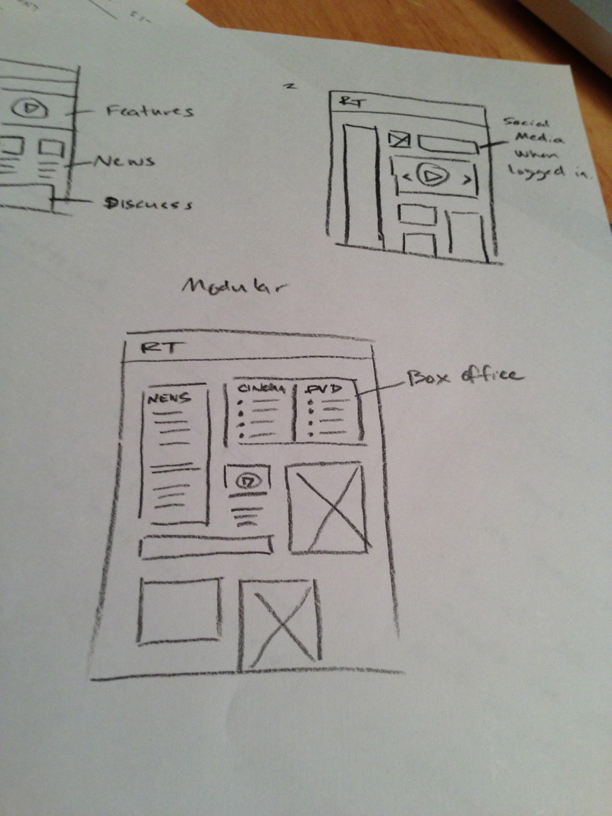 Features
News
Discuss
2
RT
Social
Media
when
logged in.
Modular
RT
NEWS
CINEMA
DVD
Box office